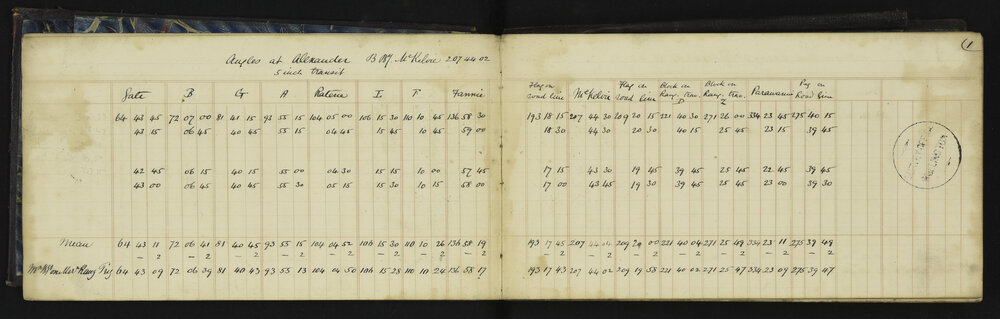 1
Angles at Alexander B By McKelvie 207 44 02
5 inch transit
Gate B G A Ratene I F Fannie
64 43 45 72 07 00 81 41 15 93 55 15 104 05 00 106 15 30 110 10 45 136 58 30
43 15 06 45 40 45 55 15 04 45 15 45 10 45 59 00
42 45 06 15 40 15 55 00 04 30 15 15 10 00 57 45
43 00 06 45 40 45 55 30 05 15 15 30 10 15 58 00
Mean 64 43 11 72 06 41 81 40 45 93 55 15 104 04 52 106 15 30 110 10 26 136 58 19
– 2 – 2 – 2 – 2 – 2 – 2 – 2 – 2
Trig 64 43 09 72 06 39 81 40 43 93 55 13 104 04 50 106 15 28 110 10 24 136 58 17
Flag on road line McKelvie Flag on road line Block on Rang. trav. D Block on Rang. trav. Z Parawanui Peg on Road line
193 18 15 207 44 30 209 20 15 221 40 30 271 26 00 334 23 45 275 40 15
18 30 44 30 20 30 40 15 25 45 23 15 39 45
17 15 43 30 19 45 39 45 25 45 22 45 39 45
17 00 43 45 19 30 39 45 25 45 23 00 39 30
193 17 45 207 44 04 209 20 00 221 40 04 271 25 49 334 23 11 275 39 49
– 2 – 2 – 2 – 2 – 2 – 2 – 2
193 17 43 207 44 02 209 19 58 221 40 02 271 25 47 334 23 09 275 39 47